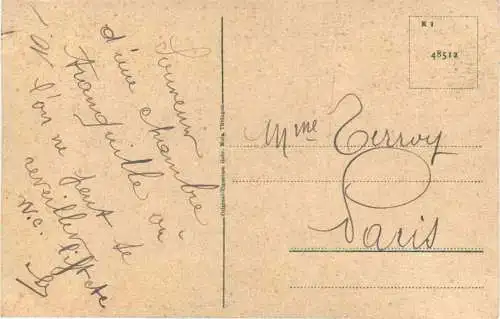 Souvenir
d'une chambre
tranquille où
l'on ne peut se
reveiller
W.C.
K I
48512
Mme Terroy
Paris